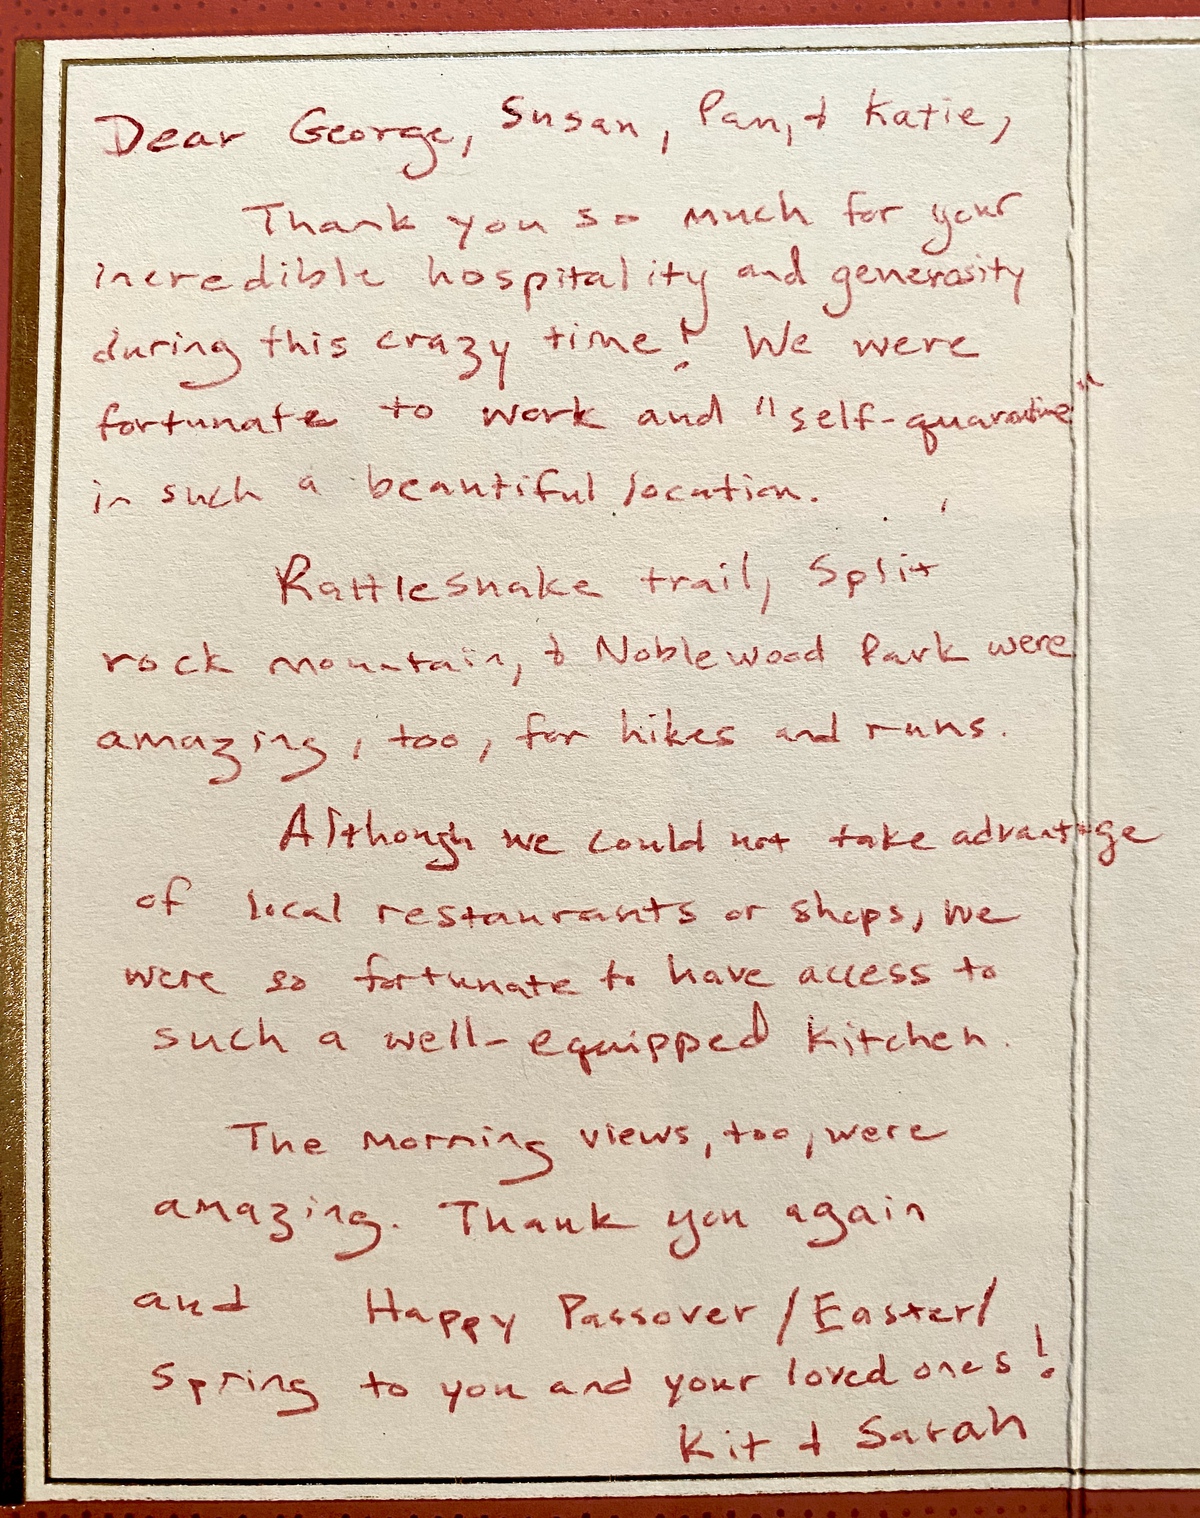 Dear George, Susan, Pam, + Katie,
Thank you so much for your
incredible hospitality and generosity
during this crazy time! We were
fortunate to work and "self-quarantine"
in such a beautiful location.
Rattlesnake trail, Split
rock mountain, + Noblewood Park were
amazing, too, for hikes and runs.
Although we could not take advantage
of local restaurants or shops, we
were so fortunate to have access to
such a well-equipped kitchen.
The morning views, too, were
amazing. Thank you again
and Happy Passover/Easter/
Spring to you and your loved ones!
Kit + Sarah